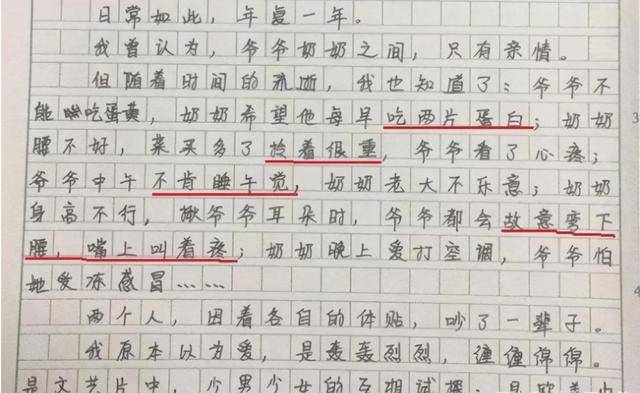 日常如此，年复一年。
我曾认为，爷爷奶奶之间，只有亲情。
但随着时间的流逝，我也知道了：爷爷不
能吃蛋黄，奶奶希望他每早吃两片蛋白；奶奶 3
腰不好，菜买多了拎着很重，爷爷看了心疼；
爷爷中午不肯睡午觉，奶奶老大不乐意；奶奶
身高不行，揪爷爷耳朵时，爷爷都会故意弯下
腰，嘴上叫着疼；奶奶晚上爱打空调，爷爷怕
她受冻感冒…… 4
两个人，因着各自的体贴，吵了一辈子。
我原本以为爱，是轰轰烈烈，缠缠绵绵。
是文艺片中，少男少女的互相试探；是欧美